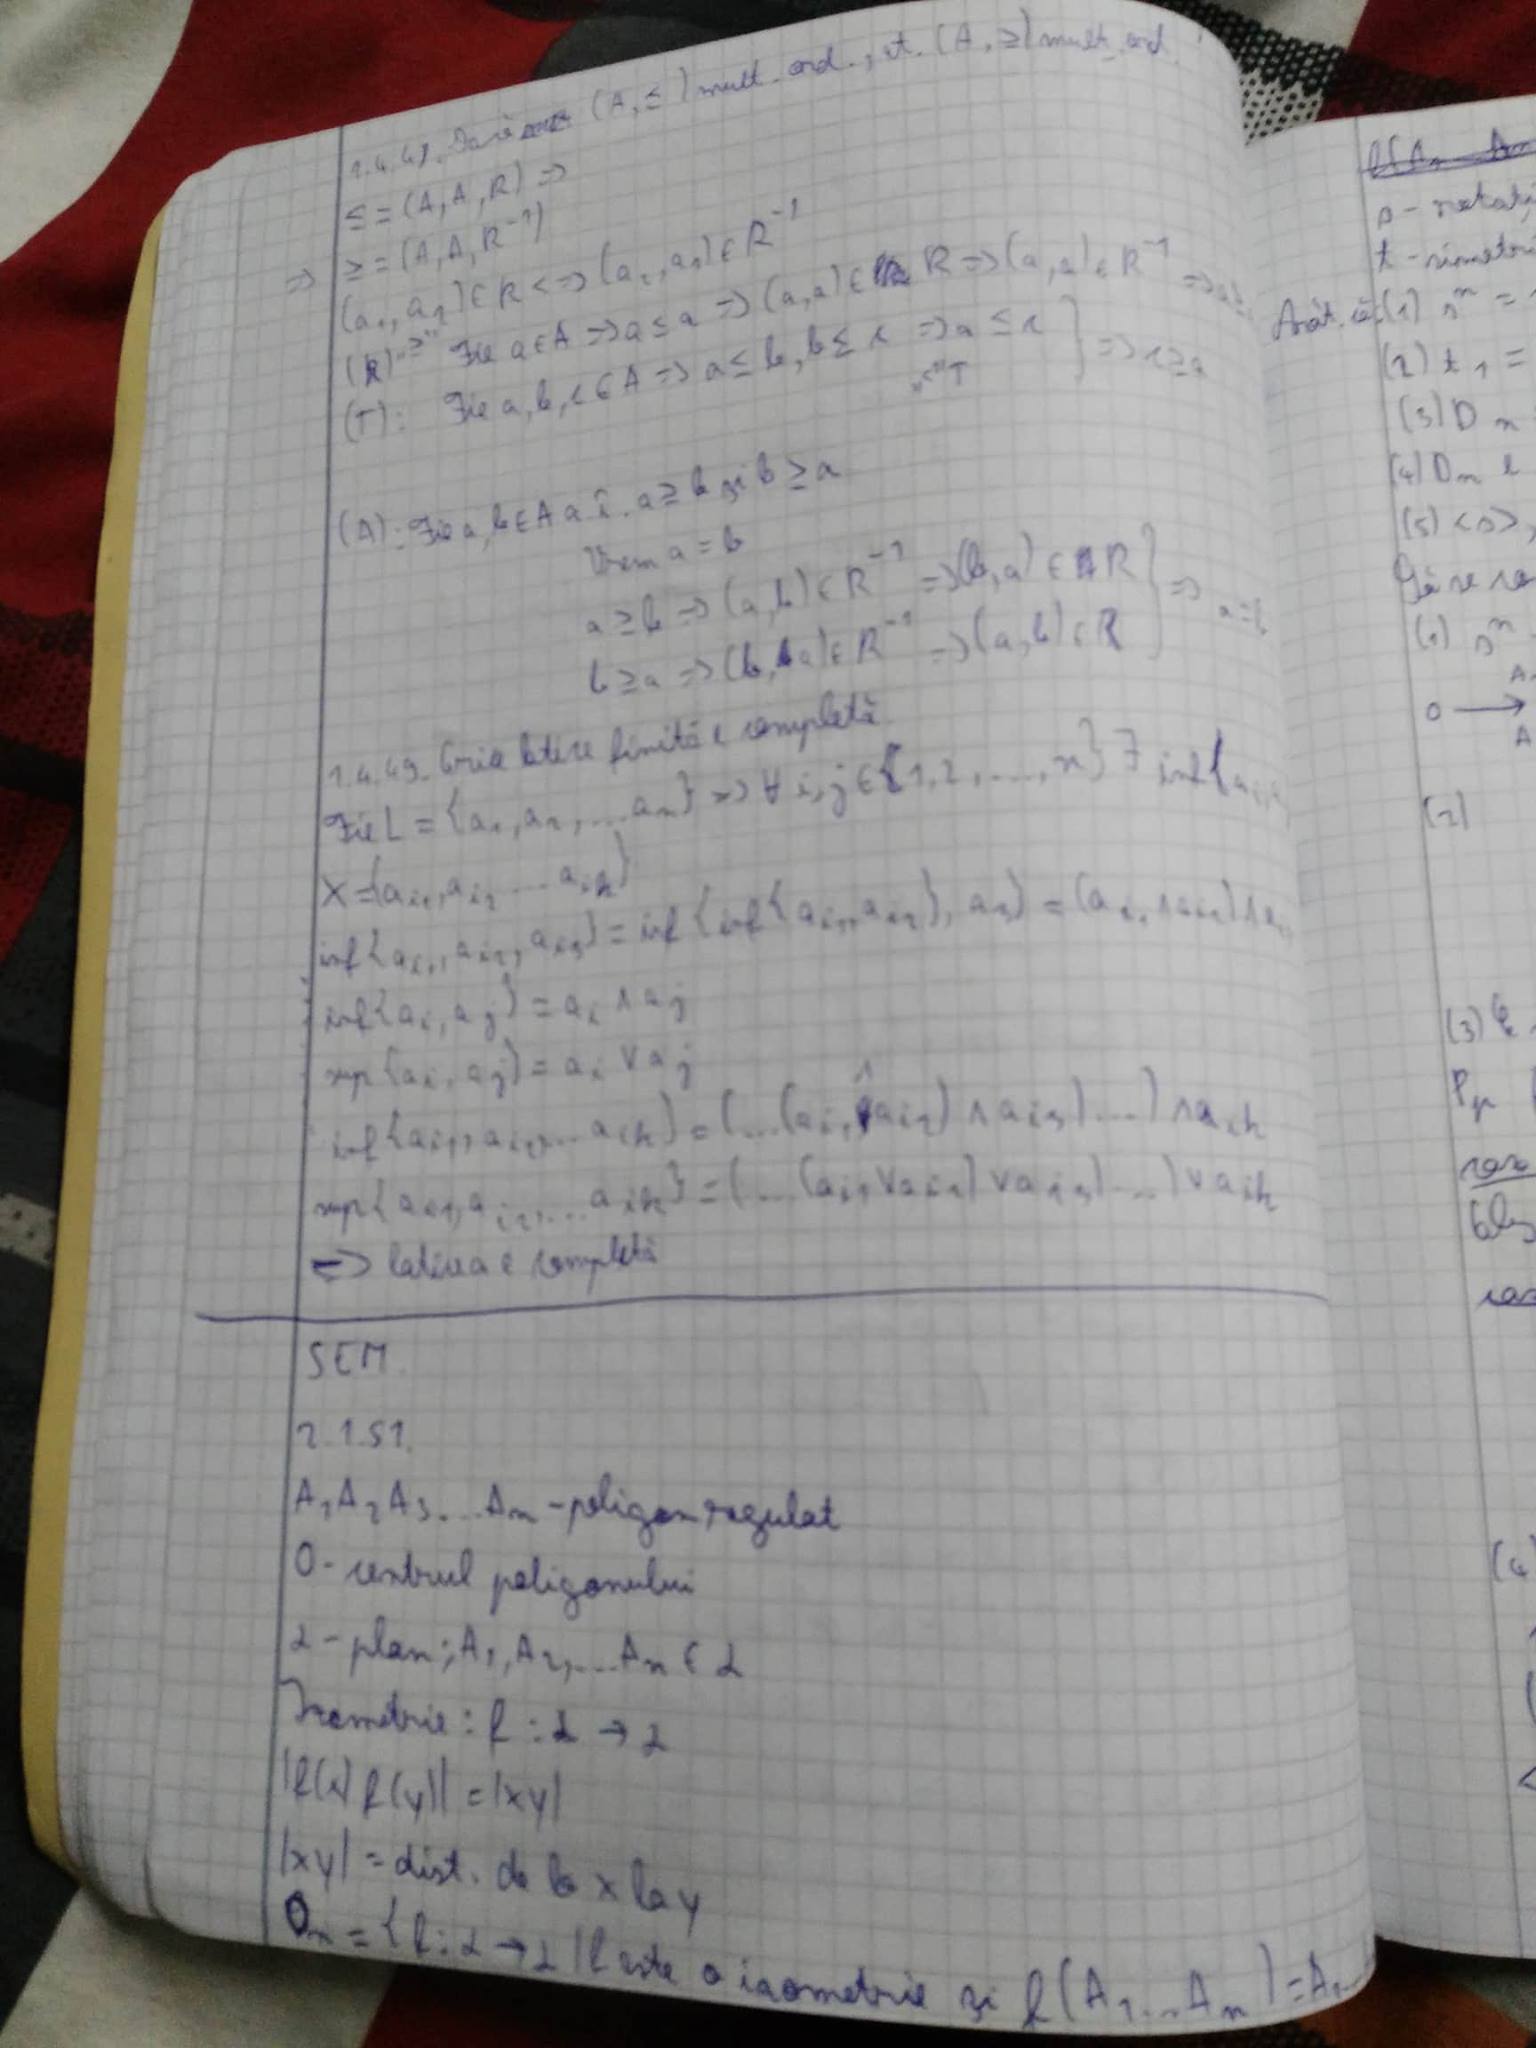 1.4.48. Dacă (A, ≤) mult. ord., at. (A, ≥) mult. ord.
≤ = (A, A, R) =>
=> ≥ = (A, A, R⁻¹)
(a₁, a₂) ∈ R <=> (a₂, a₁) ∈ R⁻¹
(R) "≥" Fie a ∈ A => a ≤ a => (a, a) ∈ R => (a, a) ∈ R⁻¹ => a ≥
(T): Fie a, b, c ∈ A => a ≤ b, b ≤ c => a ≤ c } => c ≥ a
"≤" T
(A): Fie a, b ∈ A a.î. a ≥ b și b ≥ a
Vrem a = b
a ≥ b => (a, b) ∈ R⁻¹ => (b, a) ∈ R } => a = b
b ≥ a => (b, a) ∈ R⁻¹ => (a, b) ∈ R
1.4.49. Orice latice finită e completă
Fie L = {a₁, a₂, ... aₙ} => ∀ i, j ∈ {1, 2, ..., n} ∃ inf {aᵢ, a
X = {aᵢ₁, aᵢ₂ ... aᵢₖ}
inf {aᵢ₁, aᵢ₂, aᵢ₃} = inf {inf {aᵢ₁, aᵢ₂}, a₃} = (aᵢ₁ ∧ aᵢ₂) ∧ a
inf {aᵢ, aⱼ} = aᵢ ∧ aⱼ
sup {aᵢ, aⱼ} = aᵢ ∨ aⱼ
inf {aᵢ₁, aᵢ₂, ... aᵢₖ} = (...(aᵢ₁ ∧ aᵢ₂) ∧ aᵢ₃) ...) ∧ aᵢₖ
sup {aᵢ₁, aᵢ₂, ... aᵢₖ} = (...(aᵢ₁ ∨ aᵢ₂) ∨ aᵢ₃) ...) ∨ aᵢₖ
=> laticea e completă
SEM.
2.1.51.
A₁A₂A₃...Aₙ - poligon regulat
O - centrul poligonului
α - plan; A₁, A₂, ... Aₙ ∈ α
Izometrie: f : α → α
|f(x) f(y)| = |xy|
|xy| = dist. de la x la y
Dₙ = {f : α → α | f este o izometrie și f(A₁...Aₙ) = A₁...
t - simetri
Arăt. că: (1) sⁿ =
(2) t₁ =
(3) D n
(4) Dₙ e
(5) <s>,
(1) sⁿ
O → A
(2)
(3)
(4)